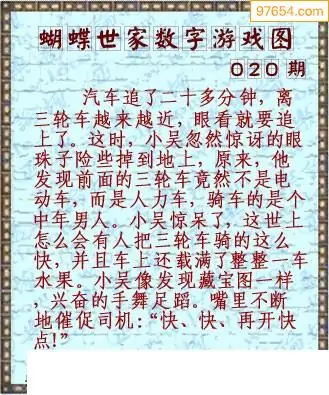 97654.com
蝴蝶世家数字游戏图
020 期
汽车追了二十多分钟，离
三轮车越来越近，眼看就要追
上了。这时，小吴忽然惊讶的眼
珠子险些掉到地上，原来，他
发现前面的三轮车竟然不是电
动车，而是人力车，骑车的是个
中年男人。小吴惊呆了，这世上
怎么会有人把三轮车骑的这么
快，并且车上还载满了整整一车
水果。小吴像发现藏宝图一样
，兴奋的手舞足蹈。嘴里不断
地催促司机：“快、快、再开快
点！”